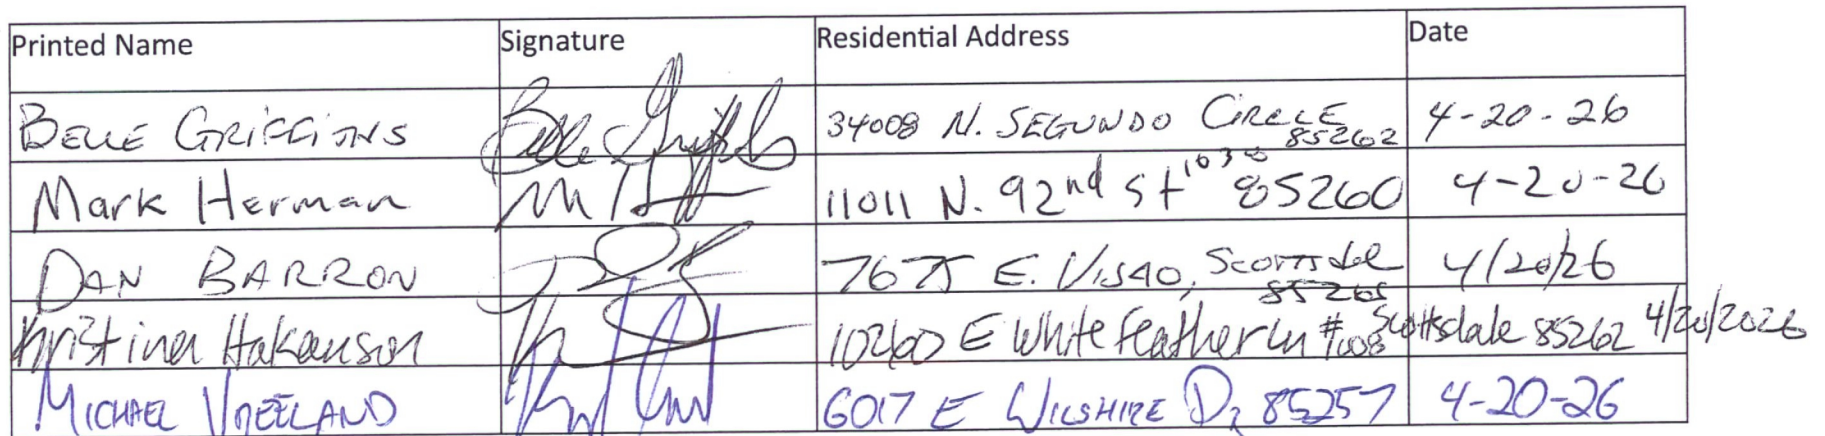 Printed Name Signature Residential Address Date
BELLE GRIFFIONS Belle Griff 34008 N. SEGUNDO CIRCLE 85262 4-20-26
Mark Herman 11011 N. 92nd St 1030 85260 4-20-26
DAN BARRON 7675 E. Visao, Scottsdale 4/20/26
Kristina Hakanson 10260 E White Feather Ln #1008 Scottsdale 85262 4/20/2026
MICHAEL VREELAND 6017 E WILSHIRE DR 85257 4-20-26